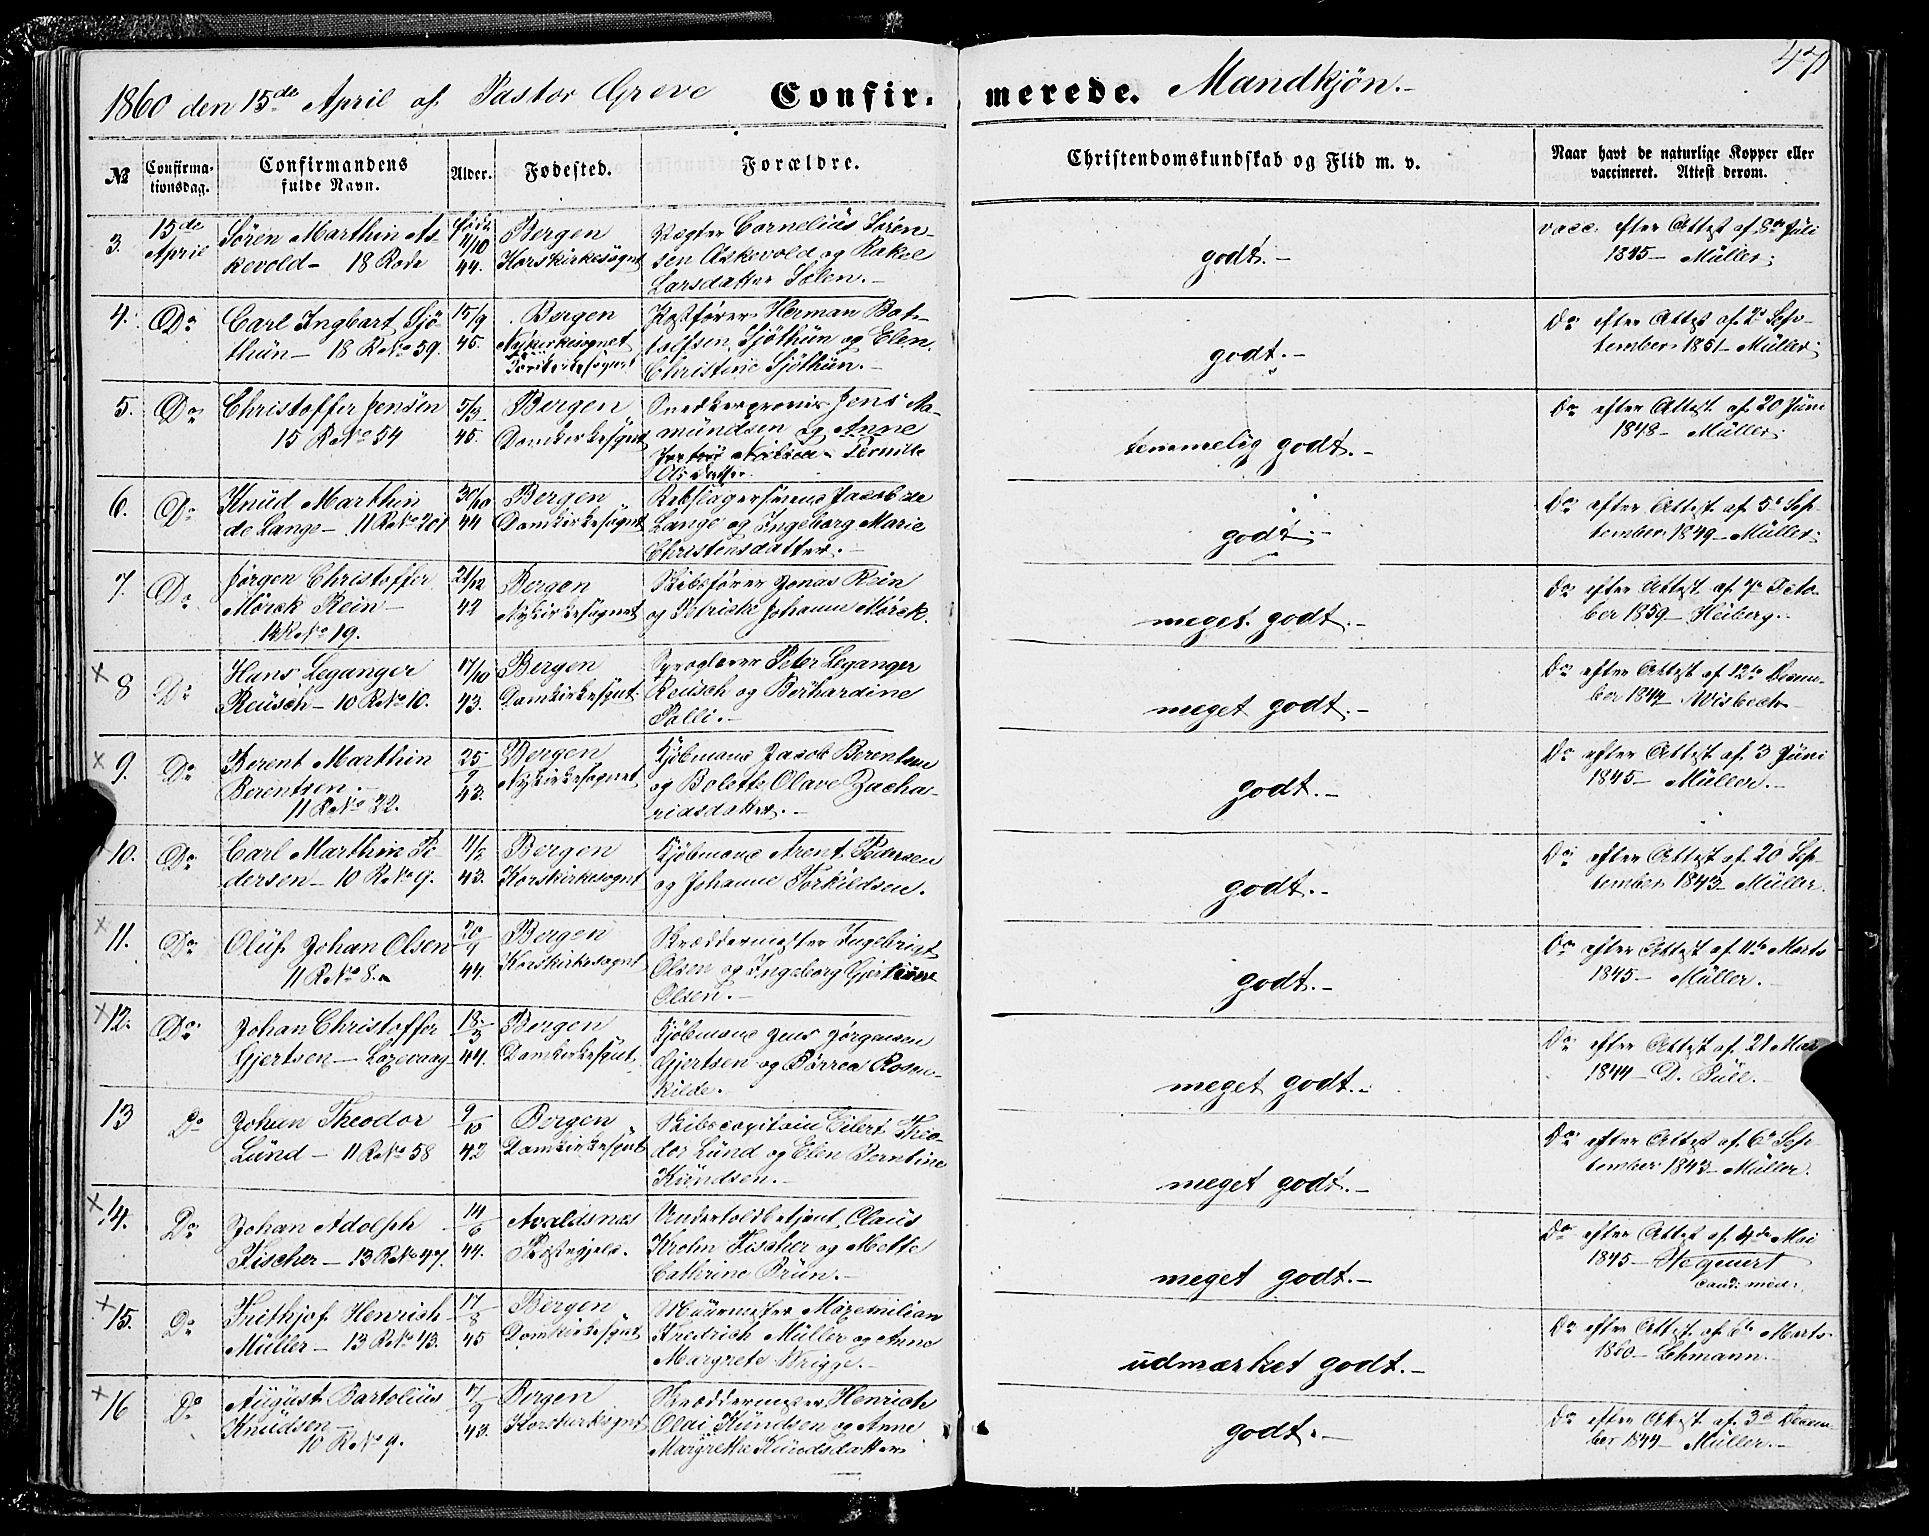 47
1860 den 15de April af Pastor Greve Confir- merede. Mandkjön.-
№ Confirma- tionsdag. Confirmandens fulde Navn. Alder. Fødested. Forældre. Christendomskundskab og Flid m. v. Naar havt de naturlige Kopper eller vaccineret. Attest derom.
3. 15de April
Sören Marthin As-
kevold- 18 Rode
11/10
44.
Bergen
Korskirkesognet
Vægter Cornelius Sören-
sen Askevold og Rakel
Larsdatter Solen.-
godt.-
vacc. efter Attest af 8de Juli
1845- Müller;
4. Do
Carl Ingbart Sjö-
thun- 18 R No 59.
15/9
45.
Bergen
Nykirkesognet
Herman Bot-
tolfsen Sjöthun og Elen
Christine Sjöthun.-
godt.-
Do efter Attest af 2 Sep-
tember 1851- Müller;
5. Do
Christoffer Jensen
15 R No 54
5/9
45.
Bergen
Domkirkesognet
Jens Aa-
mundsen og Anne
Pernille
Olsdatter.
temmelig godt.-
Do efter Attest af 20 Juni
1848- Müller;
6. Do
Knud Marthin
de Lange- 11 R No 201
30/10
44
Bergen
Domkirkesognet
Jacob de
Lange og Ingeborg Marie
Christensdatter.-
godt.-
Do efter Attest af 5 Sep-
tember 1849- Müller;
7. Do
Jörgen Christoffer
Mörck Rein-
14 R No 19.
21/12
42
Bergen
Nykirkesognet
Skibsfører Jonas Rein
og Petricke Johanne Mörck.
meget godt.-
Do efter Attest af 7 Octo-
ber 1859- Heiberg.
x 8 Do
Hans Leganger
Reusch- 10 R No 10.
17/10
43.
Bergen
Domkirkesognet
Peter Leganger
Reusch og Berhardine
Palli.-
meget godt.-
Do efter Attest af 12te Decem-
ber 1844 Wisbech
x 9. Do
Berent Marthin
Berentsen.-
11 R No 22.
25/9
43.
Bergen
Nykirkesognet
Kjöbmand Jacob Berentsen
og Bolette Olave Zacha-
riasdatter.-
godt.-
Do efter Attest af 3 Juni
1845- Müller.-
10. Do
Carl Marthin Pe-
dersen- 10 R No 9.
11/2
43.
Bergen
Korskirkesognet
Kjöbmand Arent Pedersen
og Johanne Torkildsen.
godt.-
Do efter Attest af 20 Sep-
tember 1843- Müller.
x 11. Do
Oluf Johan Olsen
11 R No 8.a
20/1
44.
Bergen
Korskirkesognet
Skræddermester Ingebrigt
Olsen og Ingeborg
Olsen.-
godt.-
Do efter Attest af 11te Marts
1845- Müller.
x 12. Do
Johan Christoffer
Gjertsen- Laxevaag
18/3
44.
Bergen
Domkirkesognet
Kjöbmand Jens Jörgensen
Gjertsen og Börrea Rosen-
kilde.-
meget godt.-
Do efter Attest af 21 Mai
1844- D.
13 Do
Johan Theodor
Lund- 11 R No 58
9/10
42
Bergen
Domkirkesognet
Skibscapitain Eilert Theo-
dor Lund og Elen Berntine
Knudsen.-
meget godt.-
Do efter Attest af 6 Sep-
tember 1843- Müller.
x 14. Do
Johan Adolph
Fischer- 13 R No 47.
14/6
44.
Avaldsnæs
Præstegjeld.
Undertoldbetjent Claus
Krohn Fischer og Mette
Cathrine Prün.-
meget godt.-
Do efter Attest af 4de Mai
1845-
cand: med:
x 15. Do
Frithjof Henrich
Müller- 13 R No 43.
17/8
45
Bergen
Domkirkesognet
Muurmester Maxemilian
Fredrich Müller og Anne
Margrete Brigge.-
udmærket godt.-
Do efter Attest af 6te Marts
1860- Lehmann.-
x 16 Do
August Bartolius
Knudsen-
10 R No 9.
7/9
43.
Bergen
Korskirkesognet
Skræddermester Henrich
Olai Knudsen og Anne
Margrethe Knudsdatter
godt.-
Do efter Attest af 3 Decem-
ber 1844- Müller.-